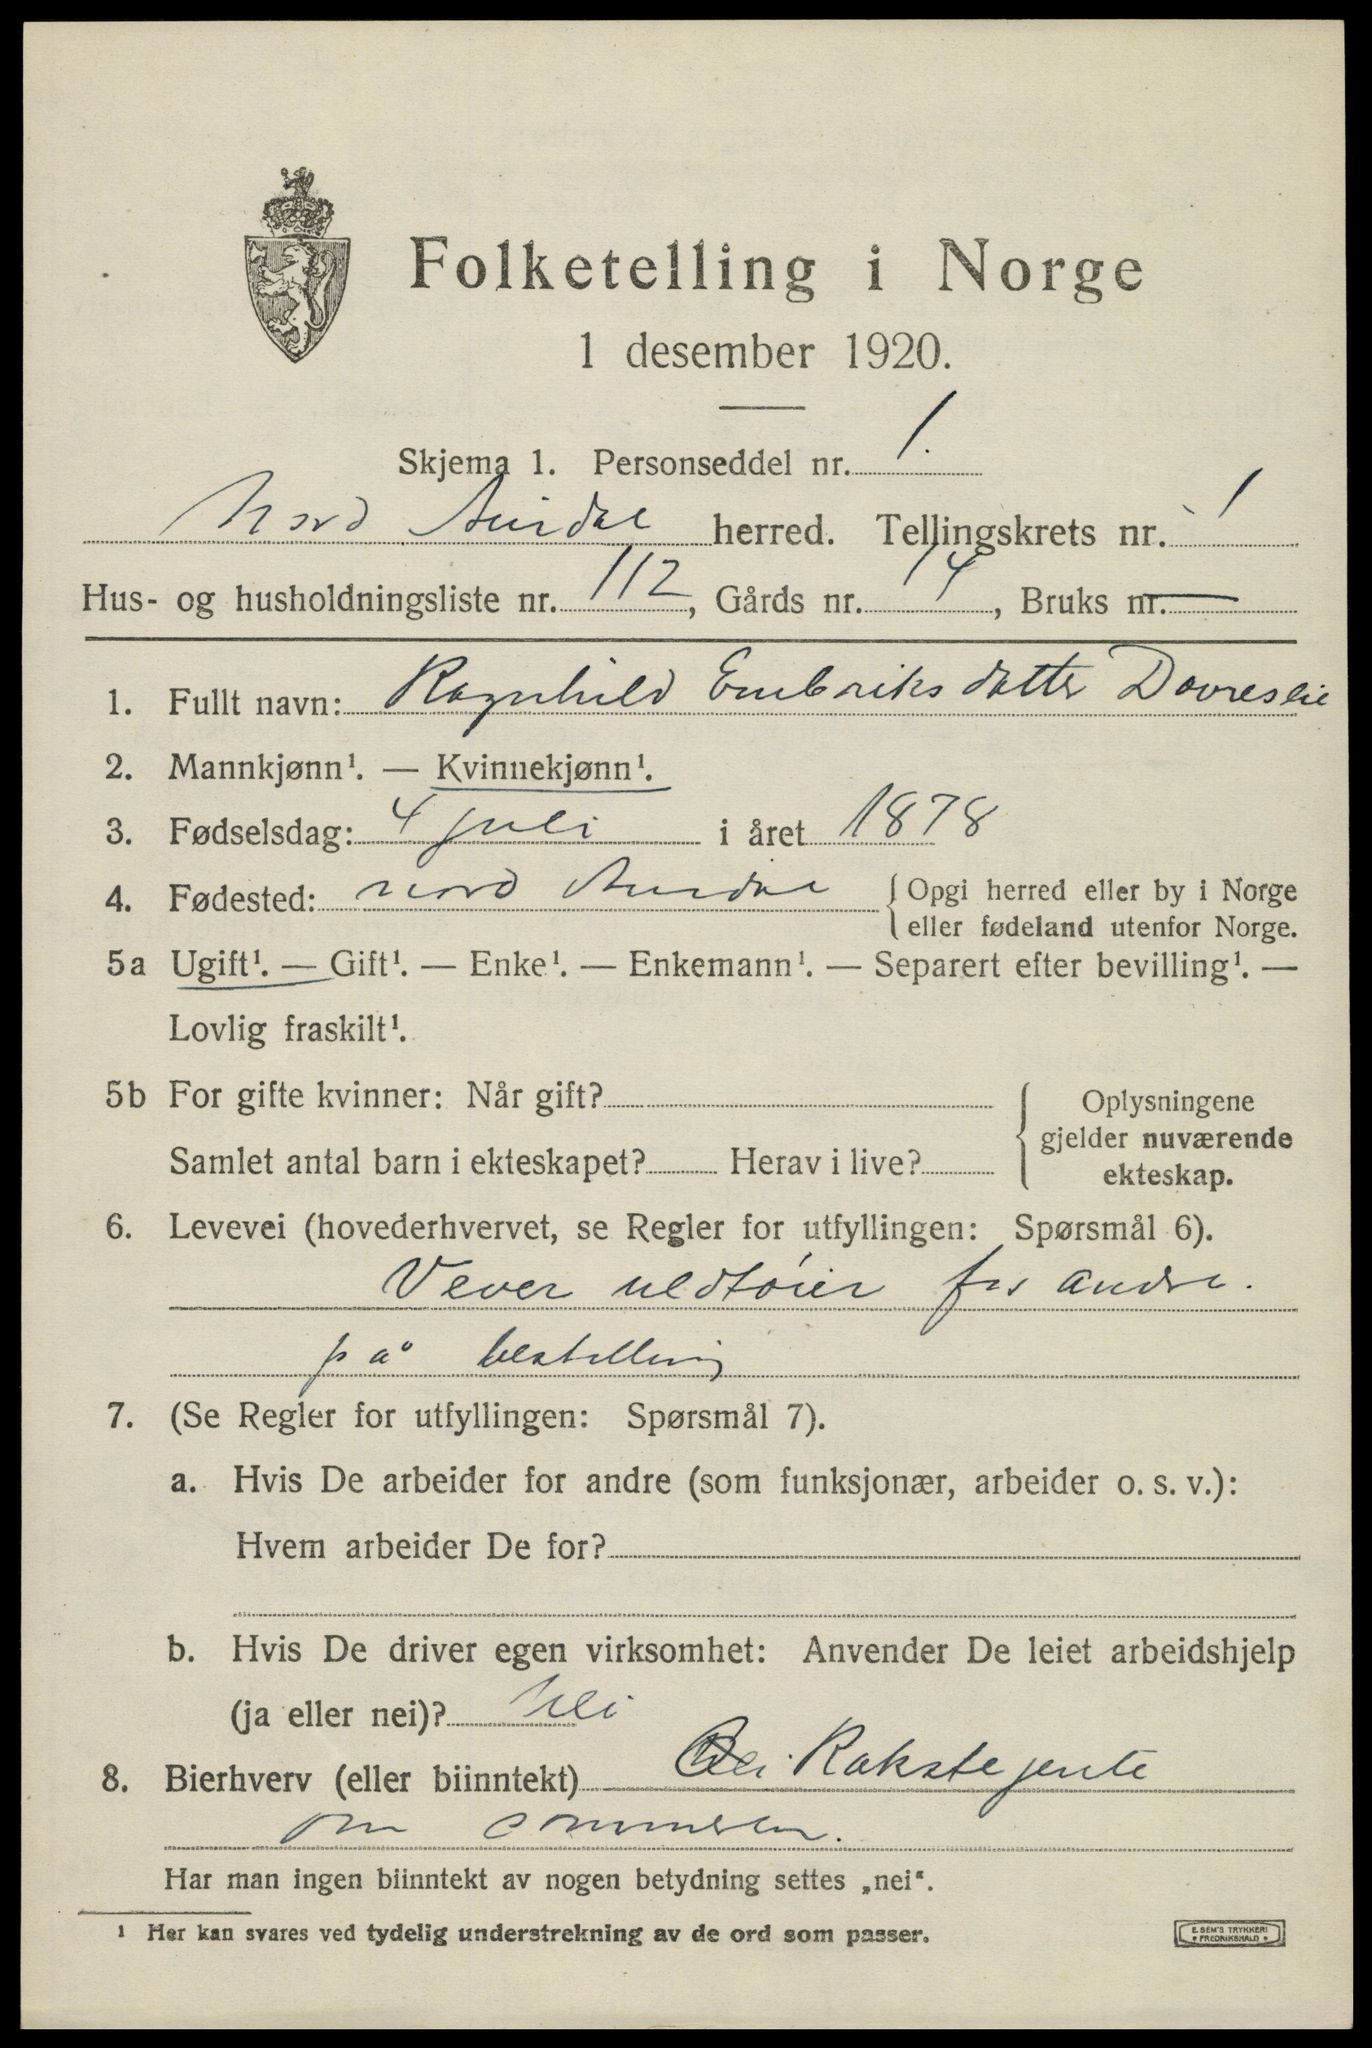 Folketelling i Norge
1 desember 1920.
Skjema 1. Personseddel nr. 1.
Nord Aurdal herred. Tellingskrets nr. 1
Hus- og husholdningsliste nr. 112, Gårds nr. 14, Bruks nr. —
1. Fullt navn: Ragnhild Embriksdatter Dovreslie
2. Mannkjønn¹. — Kvinnekjønn¹.
3. Fødselsdag: 4 juli i året 1878
4. Fødested: Nord Aurdal { Opgi herred eller by i Norge
eller fødeland utenfor Norge.
5a Ugift¹. — Gift¹. — Enke¹. — Enkemann¹. — Separert efter bevilling¹. —
Lovlig fraskilt¹.
5b For gifte kvinner: Når gift?
Samlet antal barn i ekteskapet? Herav i live?
Oplysningene
gjelder nuværende
ekteskap.
6. Levevei (hovederhvervet, se Regler for utfyllingen: Spørsmål 6).
Vever uldtøier for andre.
på bestilling
7. (Se Regler for utfyllingen: Spørsmål 7).
a. Hvis De arbeider for andre (som funksjonær, arbeider o. s. v.):
Hvem arbeider De for?
b. Hvis De driver egen virksomhet: Anvender De leiet arbeidshjelp
(ja eller nei)? Nei
8. Bierhverv (eller biinntekt) Rakstejente
om sommeren.
Har man ingen biinntekt av nogen betydning settes „nei“.
¹ Her kan svares ved tydelig understrekning av de ord som passer.
E. SEM'S TRYKKERI
FREDRIKSHALD